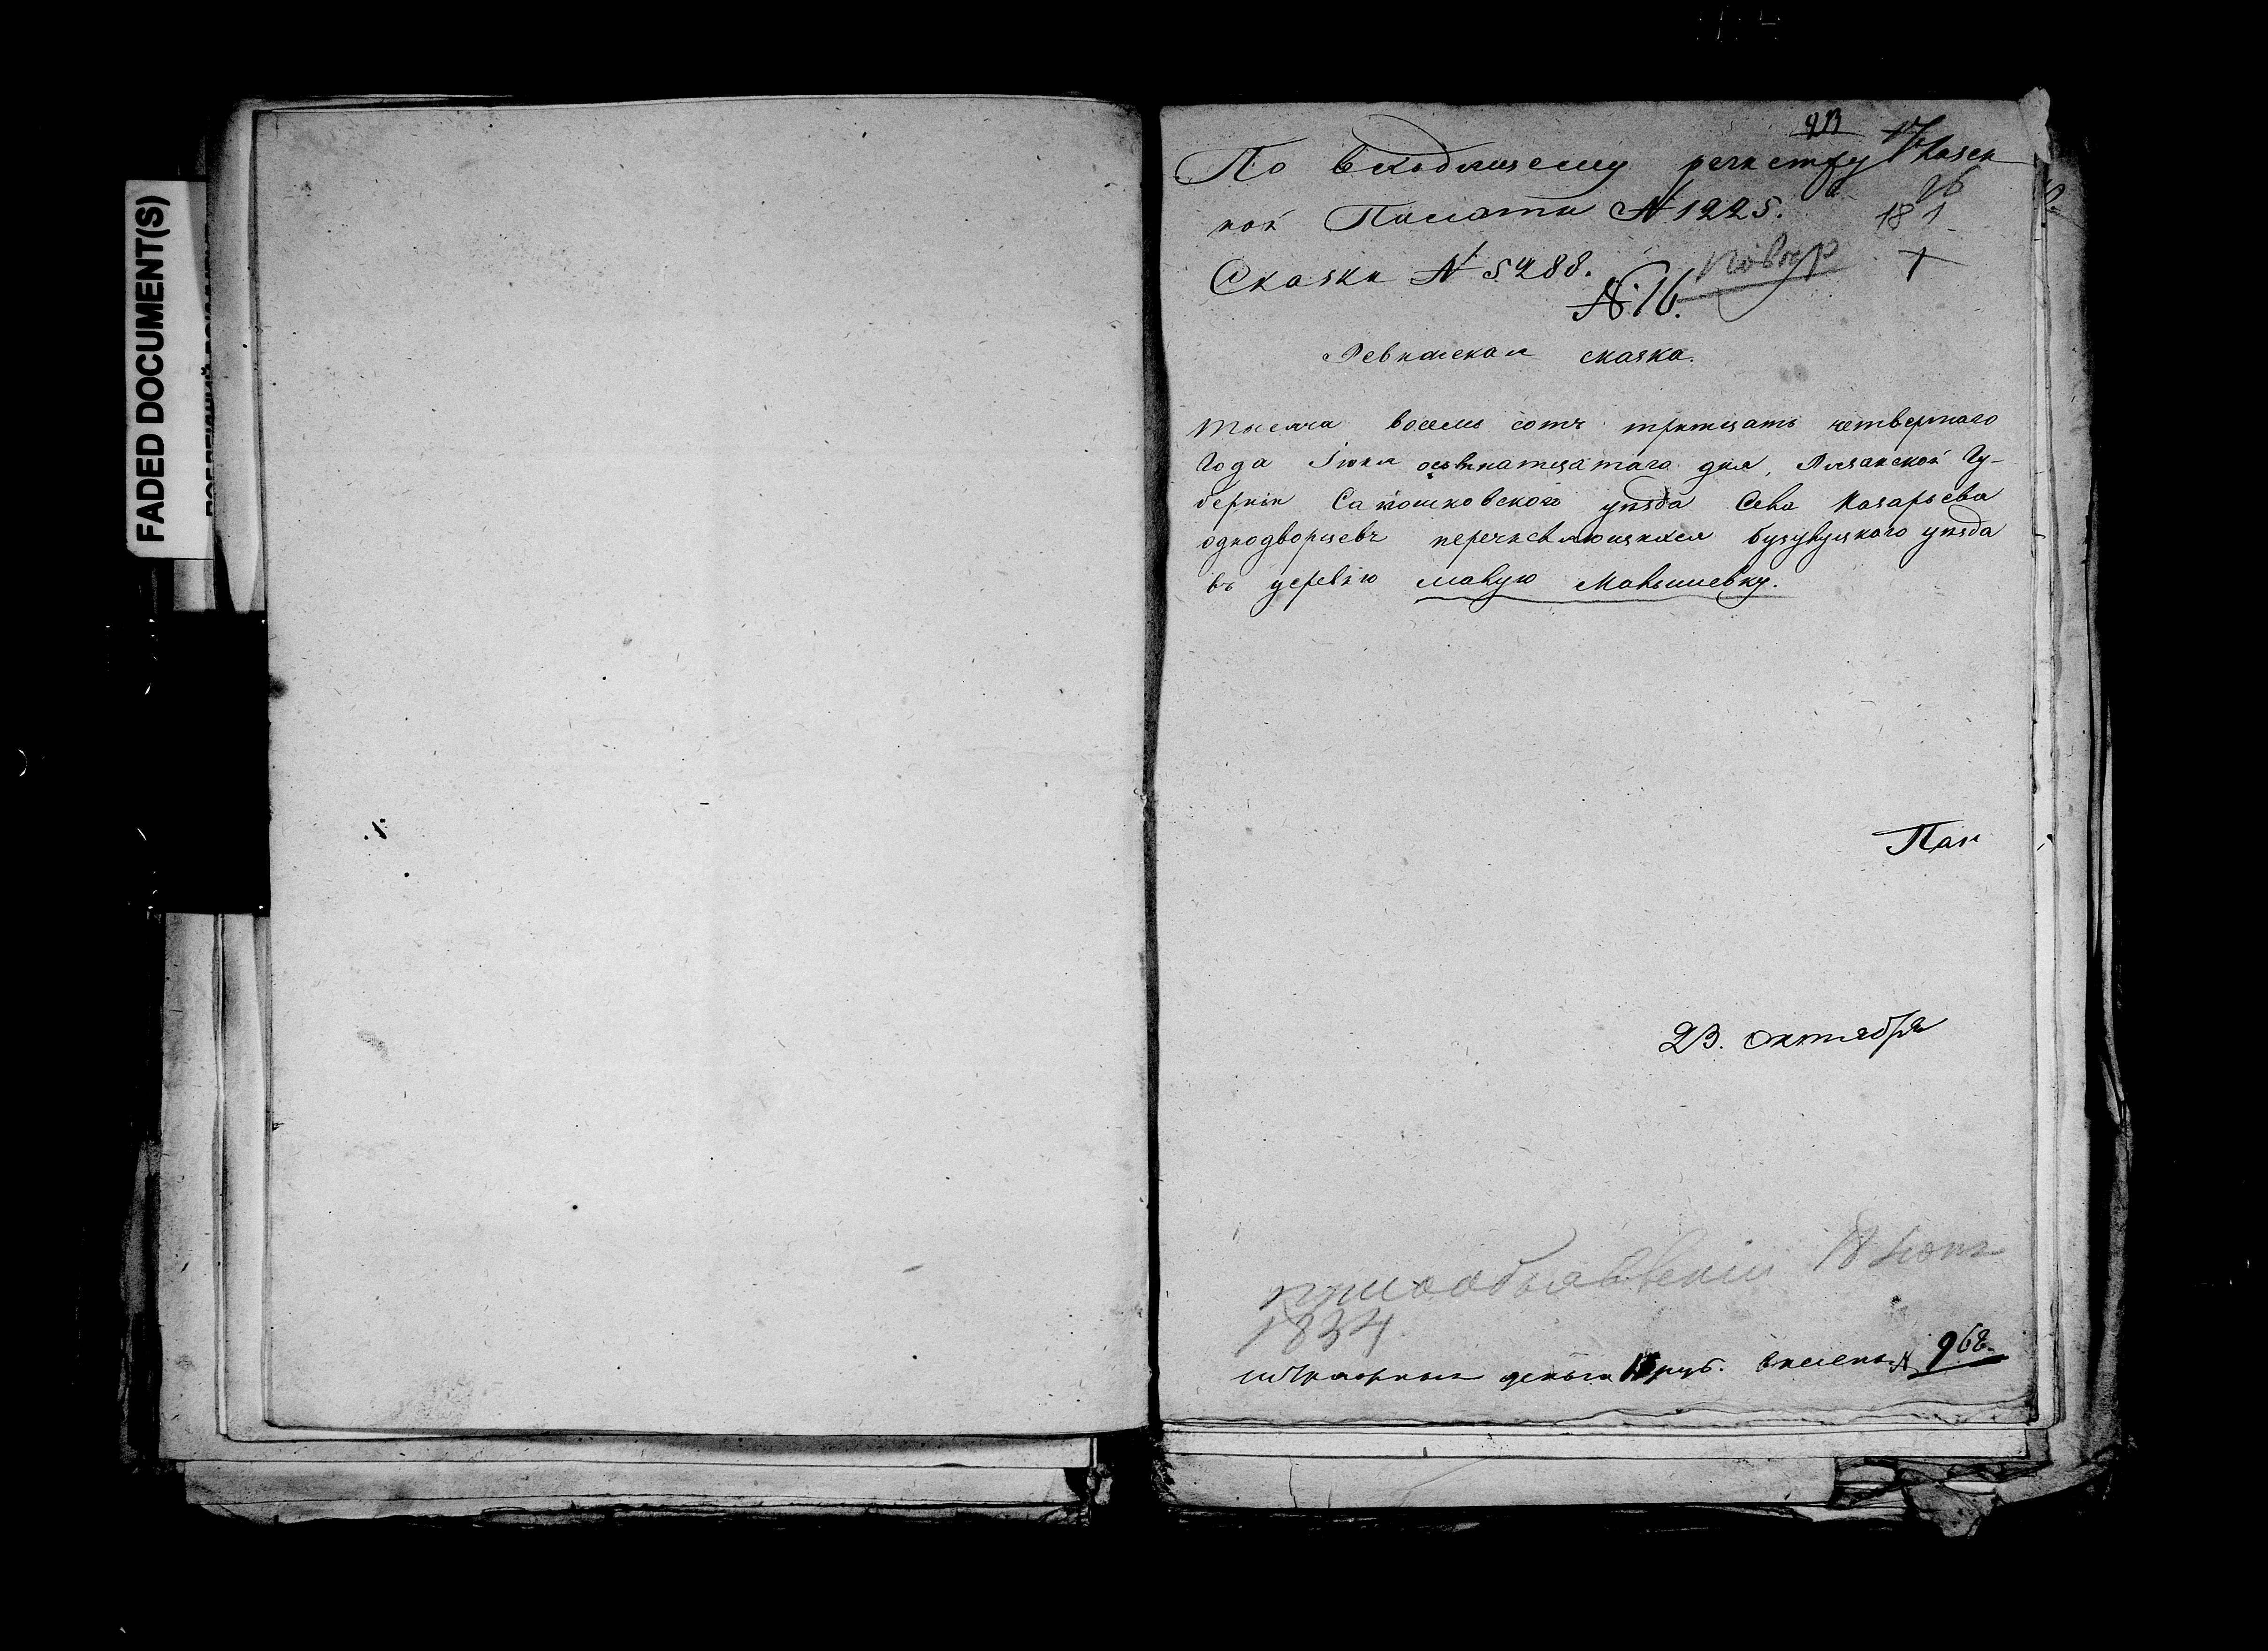 FADED DOCUMENT(S)
213
По входящему регистру Казен
ной Палаты № 1225.
181
Сказки № 5288.
повер
№ 16.
Ревижская сказка.
Тысяча восемь сотъ тритцать четвертаго
Года Іюня осьмнатцатаго дня, Рязанской Гу-
берніи Сапошковского уезда Села Назарьева
однодворцевъ перечисляющихся бузулуцкаго уезда
въ деревню малую Малышевку.
23. октября
18 Іюня
1834
штрафныя деньги руб. внесены № 968.